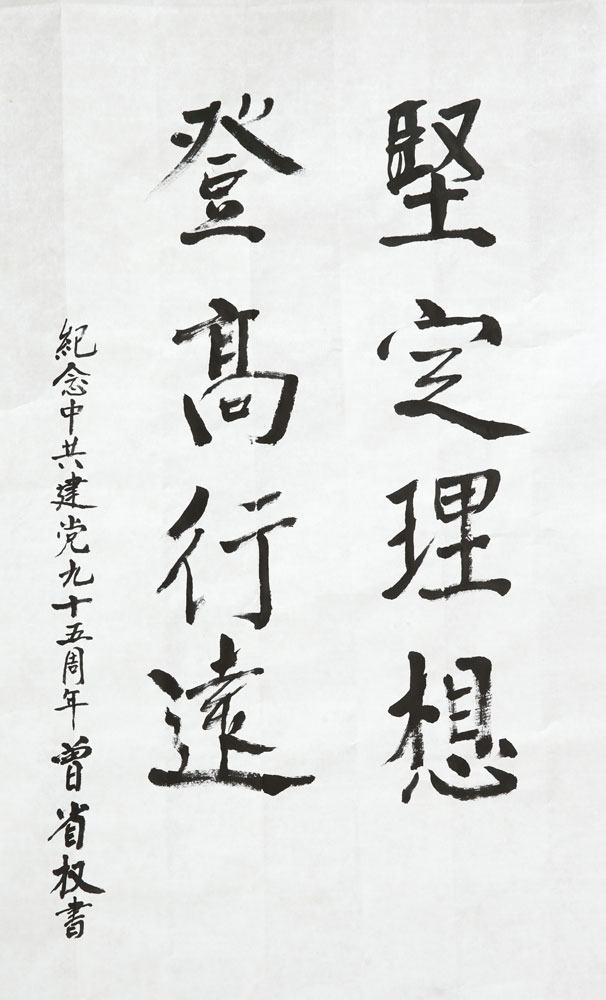 堅定理想
登髙行遠
紀念中共建党九十五周年 曾省权書